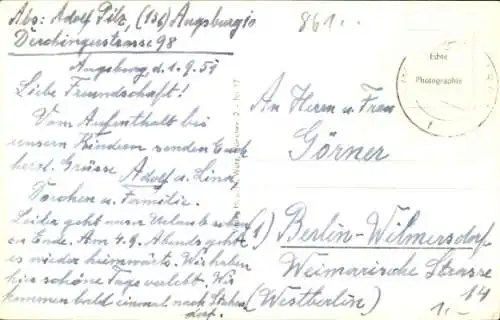 Abs: Adolf Pilz, (13b) Augsburg 10
Derchingerstrasse 98
861.-
Echte
Photographie
Augsburg, d. 1.9.59
Liebe Freundschaft!
Vom Aufenthalt bei
unsern Kindern senden Euch
herzl. Grüsse Adolf u. Lina
Dorchen u. Familie.
Leider geht unser Urlaub schon
zu Ende. Am 4.9. Abends geht
es wieder heimwärts. Wir haben
hier schöne Tage verlebt. Wir
kommen bald einmal nach
dorf.
An Herrn u. Frau
Görner
(1) Berlin-Wilmersdorf
Weimarische Strasse
14
(Westberlin)
1.-